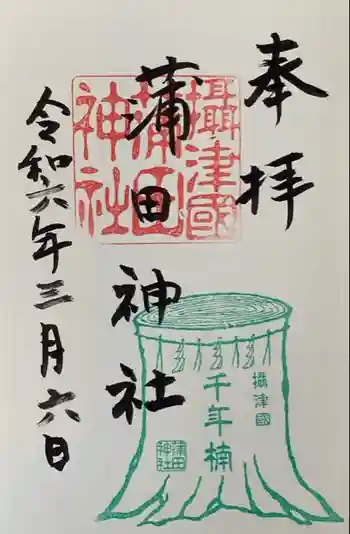 奉拝
攝津國
蒲田
神社
蒲田神社
攝津國
千年楠
蒲田
神社
令和六年三月六日